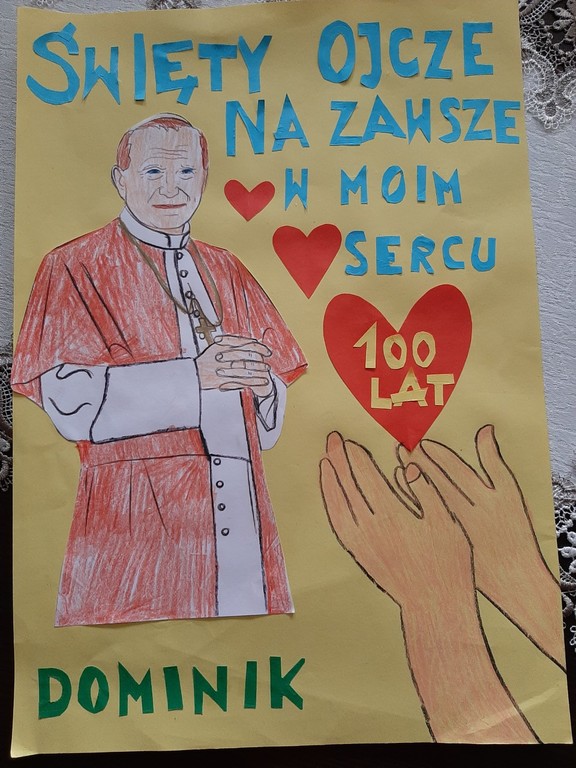 ŚWIĘTY OJCZE
NA ZAWSZE
W MOIM
SERCU
100
LAT
DOMINIK